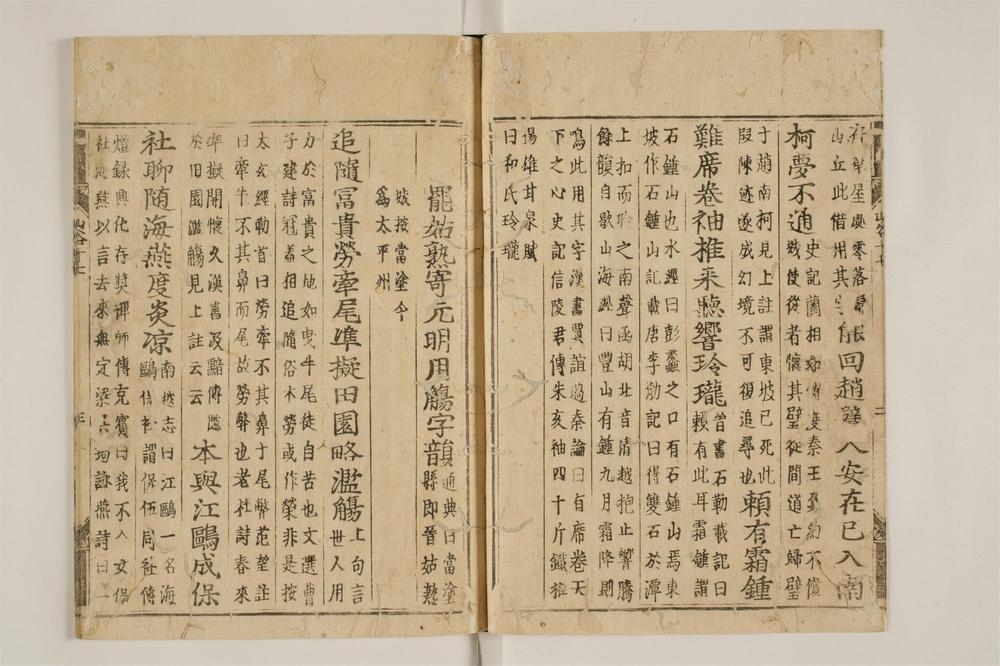 存華屋處零落歸
山丘此借用其字
能回趙璧人安在已入南
柯夢不通
史記藺相如傳度秦王負約不償
城使從者懷其璧從間道亡歸璧
于 南柯見上註謂東坡已死此
段陳迹遂成幻境不可復追尋也
賴有霜鍾
難席卷袖椎来聽響玲瓏
晉書石勒載記曰
賴有此耳霜鍾謂
石鍾山也水經曰彭蠡之口有石鍾山焉東
坡作石鍾山記載唐李渤記曰得雙石於潭
上扣而聆之南聲函胡北音清越抱止響騰
餘韻自歌山海經曰豐山有鍾九月霜降則
鳴此用其字漢書賈誼過秦論曰有席卷天
下之心史記信陵君傳朱亥袖四十斤鐵椎
揚雄甘泉賦
曰和氏玲瓏
罷姑熟寄元明用觴字韻
通典曰當塗
縣即晉姑熟
城按當塗今
為太平州
追隨冨貴勞牽尾準擬田園略濫觴
上句言
世人用
力於富貴之地如曳牛尾徒自苦也文選曹
子建詩冠盖相追隨俗本勞或作榮非是按
太玄經勒首曰勞牽不其鼻于尾弊范望註
曰牽牛不其鼻而尾故勞弊也老杜詩春來
準擬開懷久漢書 黯傳
於田園濫觴見上註云云
本與江鷗成保
社聊随海燕度炎凉
南越志曰江鷗一名海
鷗 謂保伍同社傳
燈録興化存奬禪師傳克賓曰我不入女保
社海燕以言去來無定梁吴均詠燕詩曰一
山谷十七